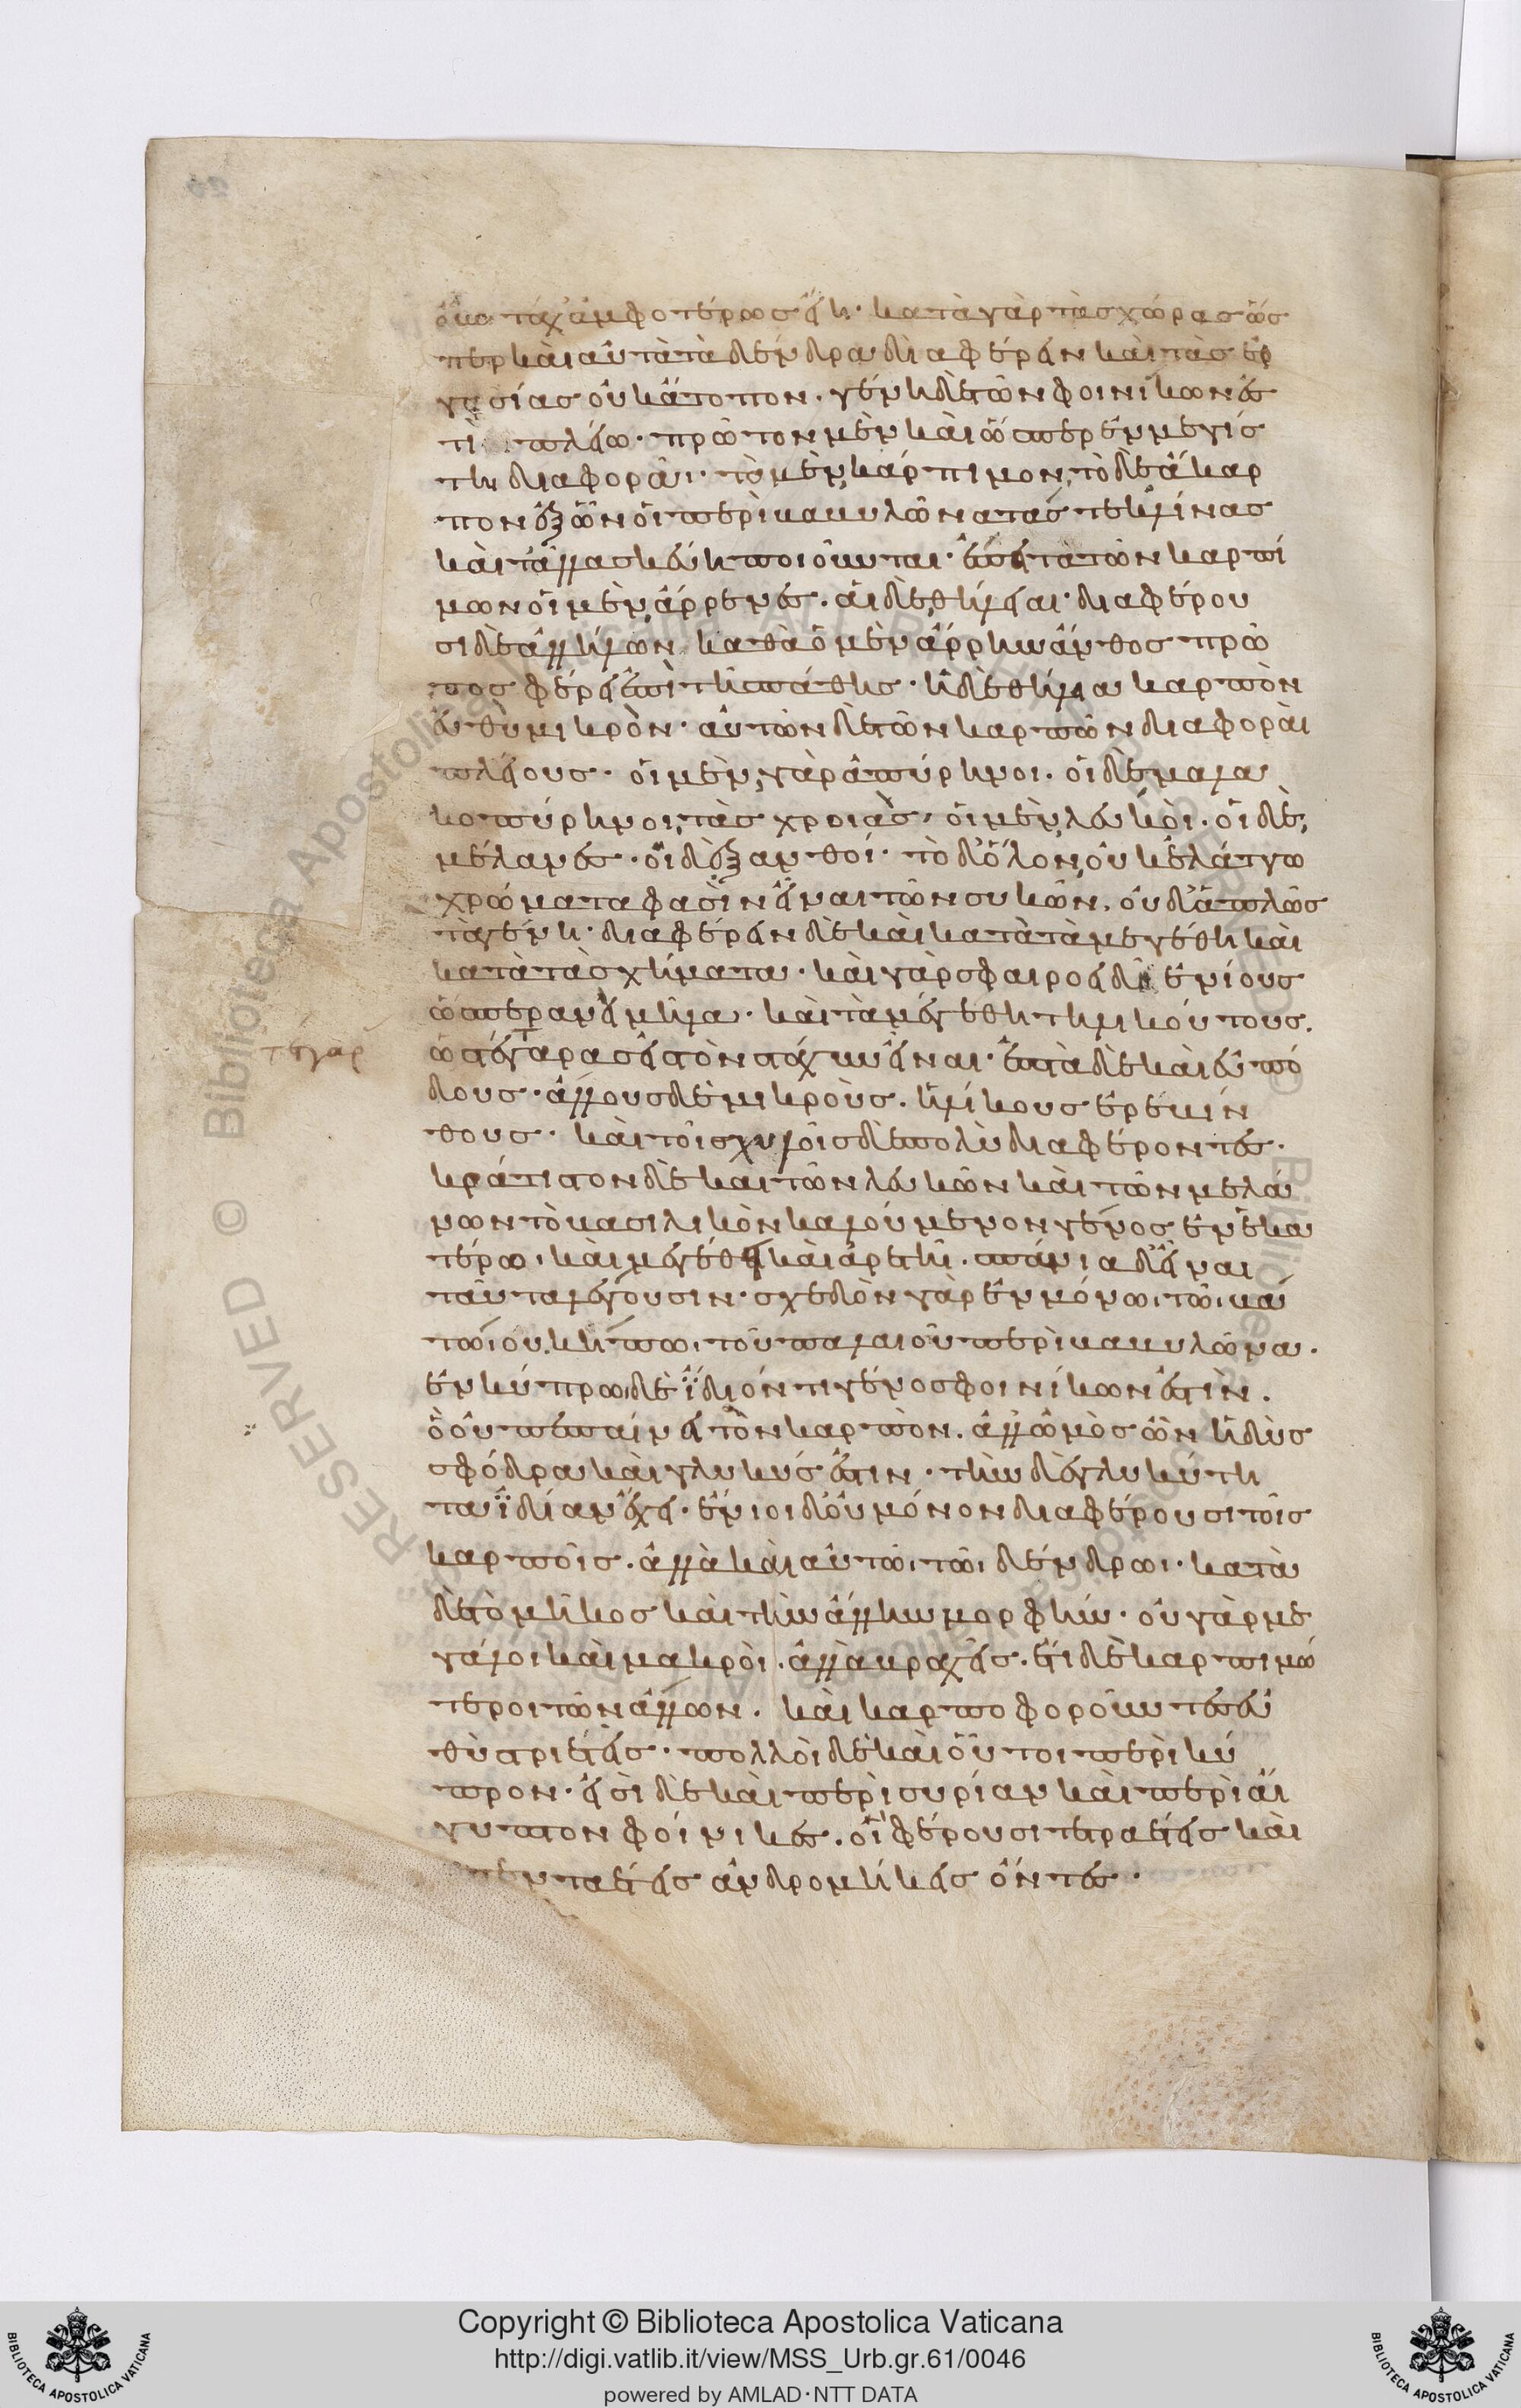 οὖν τάχ' ἀμφοτέρως ἔχει· κατὰ γὰρ τὰς χώρας ὥσ
περ καὶ αὐτὰ τὰ δένδρα διαφέρειν καὶ τὰς ἐρ
γασίας οὐκ ἄτοπον. γένη δὲ τῶν φοινίκων ἐσ
τὶ πλείω· πρῶτον μὲν καὶ ὥσπερ ἐν μεγίσ
τη διαφορᾶι· τὸ μὲν κάρπιμον, τὸ δὲ ἄκαρ
πον ἐξ ὧν οἱ περὶ βαβυλῶνα τάς τε κλίνας
καὶ τἄλλα σκεύη ποιοῦνται· ἔπειτα τῶν καρπί
μων οἱ μὲν ἄρρενες. αἱ δὲ θήλειαι· διαφέρου
σι δὲ ἀλλήλων καθὰ ὁ μὲν ἄρρην ἄνθος πρῶ
τος φέρει ἐπὶ τῆς πάθης· ἡ δὲ θήλεια καρπὸν
εὐθὺ μικρὸν· αὐτῶν δὲ τῶν καρπῶν διαφοραὶ
πλείους· οἱ μὲν γὰρ ἀπύρηνοι. οἱ δὲ μαλα
κοπύρηνοι, τὰς χροιὰς, οἱ μὲν λευκοὶ. οἱ δὲ,
μέλανες. οἱ δὲ ξανθοί· τὸ δ' ὅλον, οὐκ ἐλάττω
χρώματά φασιν εἶναι τῶν συκῶν. οὐδ' ἁπλῶς
τὰ γένη· διαφέρειν δὲ καὶ κατὰ τὰ μεγέθη καὶ
κατὰ τὰ σχήματα· καὶ γὰρ σφαιροειδεῖς ἐνίους
ὡσπερανεὶ μῆλα· καὶ τὰ μεγέθη τηλικούτους.
τέγαρ
ὥστε γὰρ ασ εἰς τὸν πῆχυν εἶναι· ἑπτὰ δὲ καὶ εὐπό
δους· ἄλλους δὲ μικροὺς. ἡλίκους ἐρεβίν
θους· καὶ τοῖς χυλοῖς δὲ πολὺ διαφέροντες.
κράτιστον δὲ καὶ τῶν λευκῶν καὶ τῶν μελά
νων τὸ βασιλικὸν καλούμενον γένος ἐν ἑκα
τέρω. καὶ μεγέθει καὶ ἀρετῆ. σπάνια δ' εἶναι
ταῦτα λέγουσιν· σχεδὸν γὰρ ἐν μόνωι τῶι βά
τωι οὐ. κήπωι τοῦ παλαιοῦ περὶ βαβυλῶνα.
ἐν κύπρωι δὲ ἴδιόν τι γένος φοινίκων ἐστὶν.
ὃ οὐ πεπαίνει τὸν καρπὸν. ἀλλ' ὠμὸς ὢν ἡδὺς
σφόδρα καὶ γλυκύς ἐστιν· τὴν δὲ γλυκύτη
τα ἰδίαν ἔχει. ἔνιοι δ' οὐ μόνον διαφέρουσι τοῖς
καρποῖς. ἀλλὰ καὶ αὐτῶι τῶι δένδρωι· κατὰ
δὲ τὸ μῆκος καὶ τὴν ἄλλην μορφήν· οὐ γὰρ με
γάλοι καὶ μακροὶ. ἀλλὰ βραχεῖς. ἔτι δὲ καρπιμώ
τεροι τῶν ἄλλων. καὶ καρποφοροῦντες εὐ
θὺ τριετεῖς· πολλοὶ δὲ καὶ οὗτοι περὶ κύ
προν· εἰσὶ δὲ καὶ περὶ συρίαν καὶ περὶ αἴ
γυπτον φοίνικες. οἳ φέρουσι τετραετεῖς καὶ
πενταετεῖς ἀνδρομήκεις ὄντες.
Copyright © Biblioteca Apostolica Vaticana
http://digi.vatlib.it/view/MSS_Urb.gr.61/0046
powered by AMLAD·NTT DATA